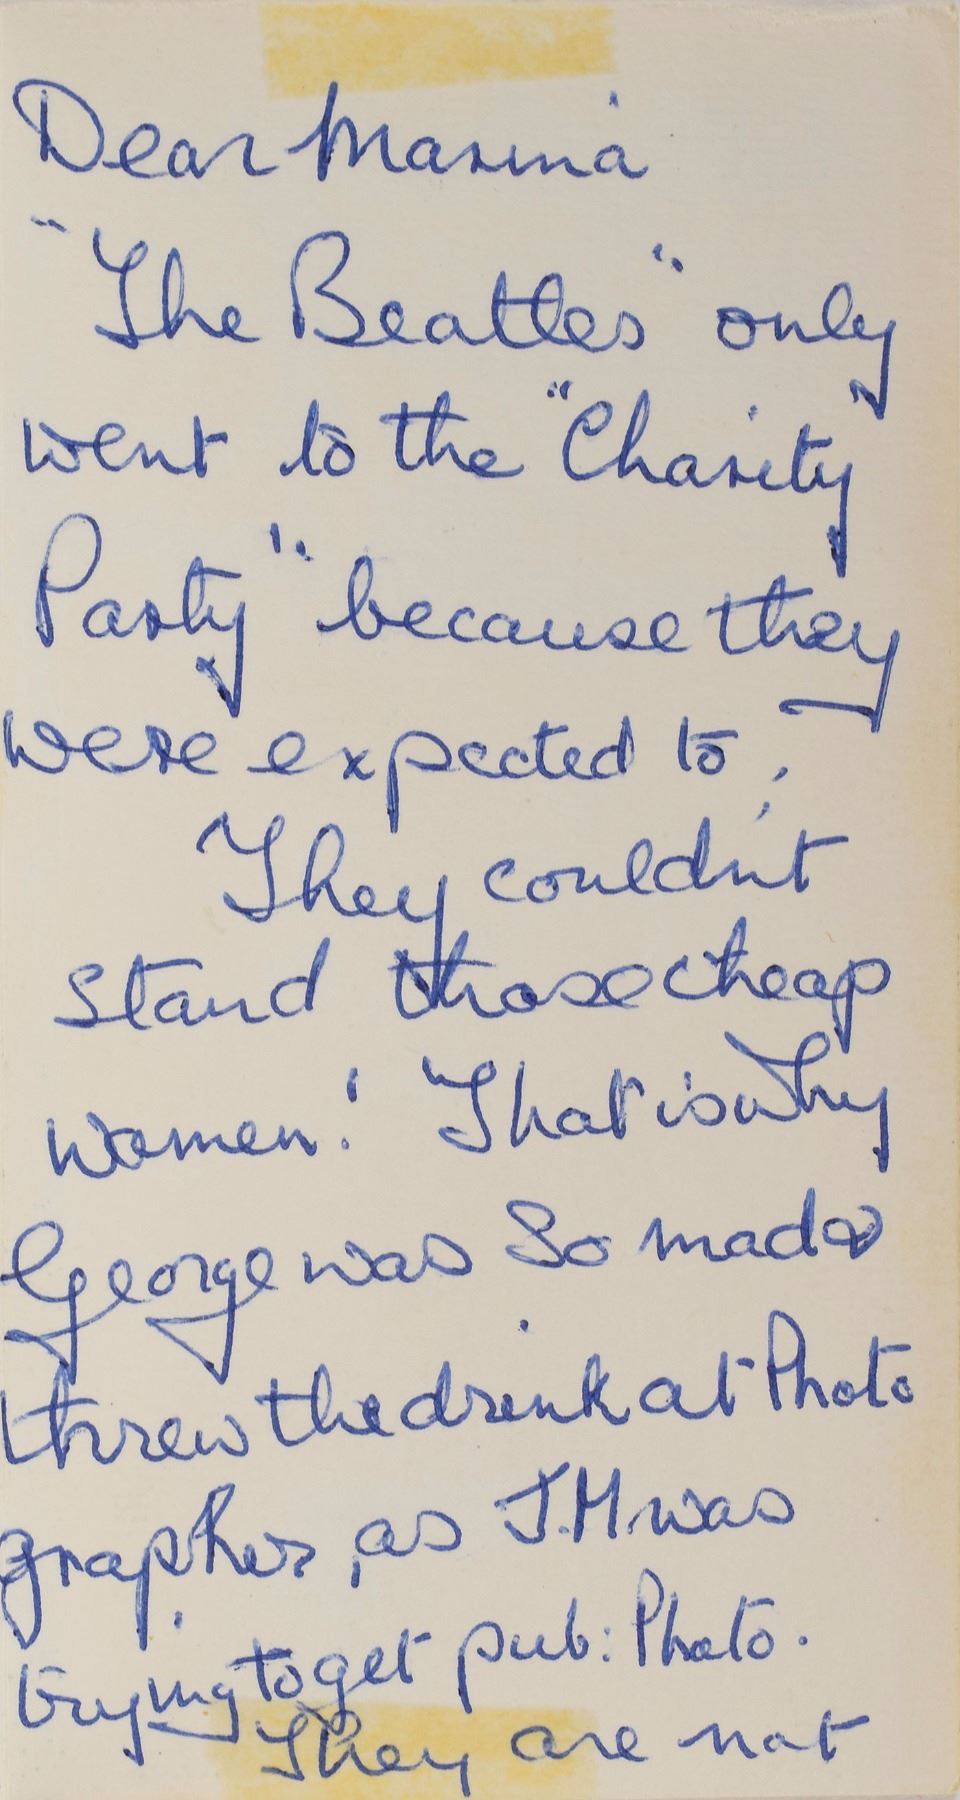 Dear Marina
"The Beatles" only
went to the "Charity"
Party" because they
were expected to,
They couldn't
stand those cheap
women! That is why
George was so mad &
threw the drink at Photo
grapher, as J.M. was
trying to get pub: Photo.
They are not